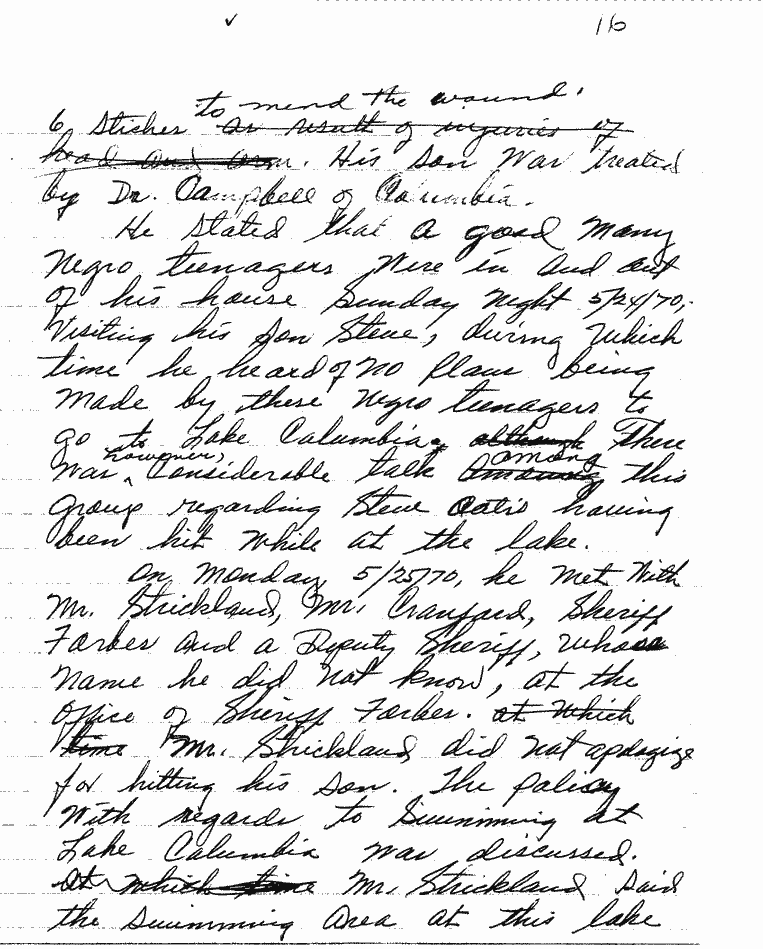 ✓ 16
to mend the wound.
6 Stiches as result of injuries of
head and arm. His son was treated
by Dr. Campbell of Columbia.
He stated that a good many
Negro teenagers were in and out
of his house Sunday night 5/24/70,
visiting his son Steve, during which
time he heard of no plans being
made by these Negro teenagers to
go to Lake Columbia. although There
was, however, considerable talk amoung among this
group regarding Steve having
been hit while at the lake.
On Monday, 5/25/70, he met with
Mr. Strickland, Mr. Cranford, Sheriff
Farber and a Deputy Sheriff, whose
name he did not know, at the
office of Sheriff Farber. at which
time Mr. Strickland did not apologize
for hitting his son. The policy
with regards to swimming at
Lake Columbia was discussed.
At which time Mr. Strickland said
the swimming area at this lake